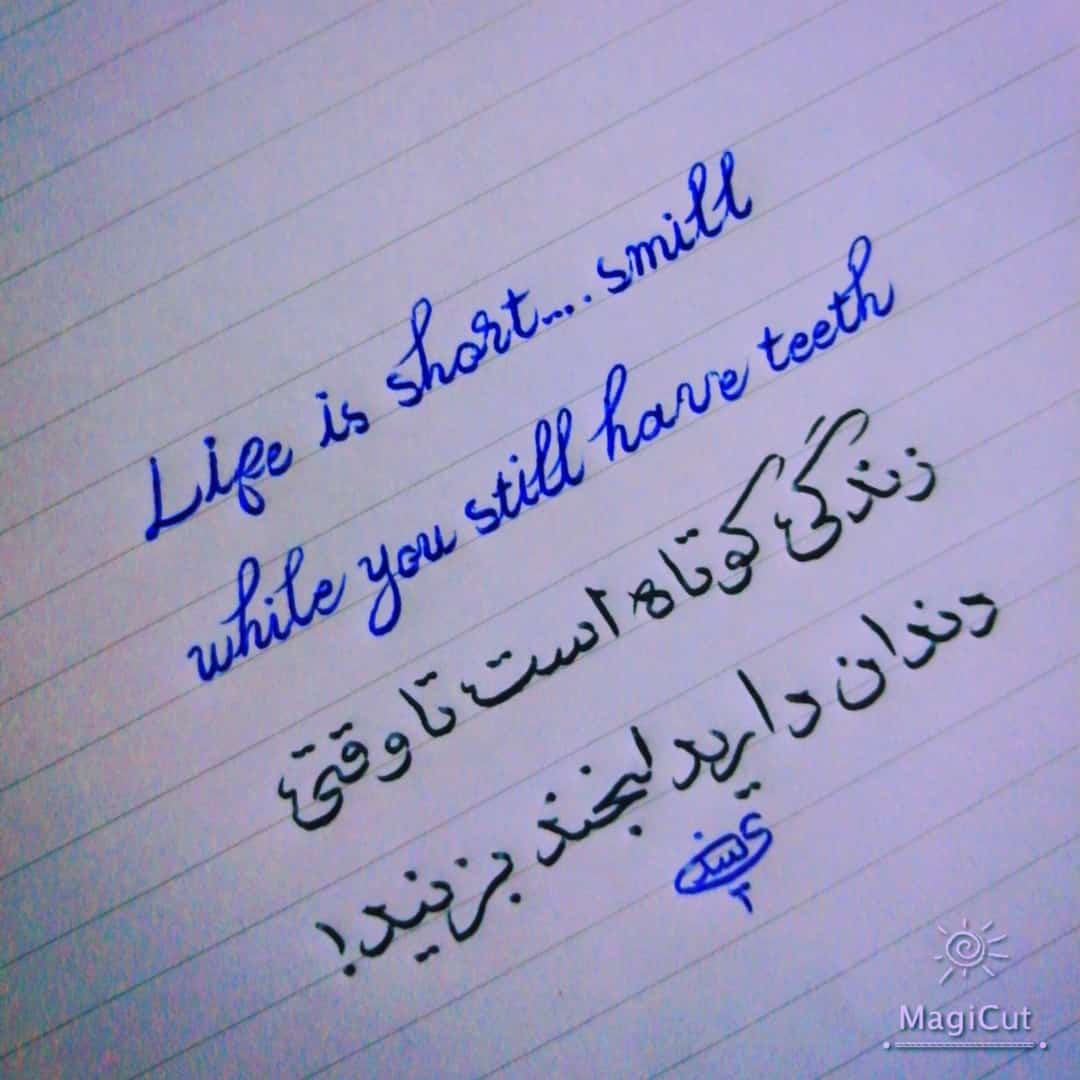 Life is short.... smill
while you still have teeth
زندگی کوتاه است تا وقتی
دندان دارید لبخند بزنید!
MagiCut